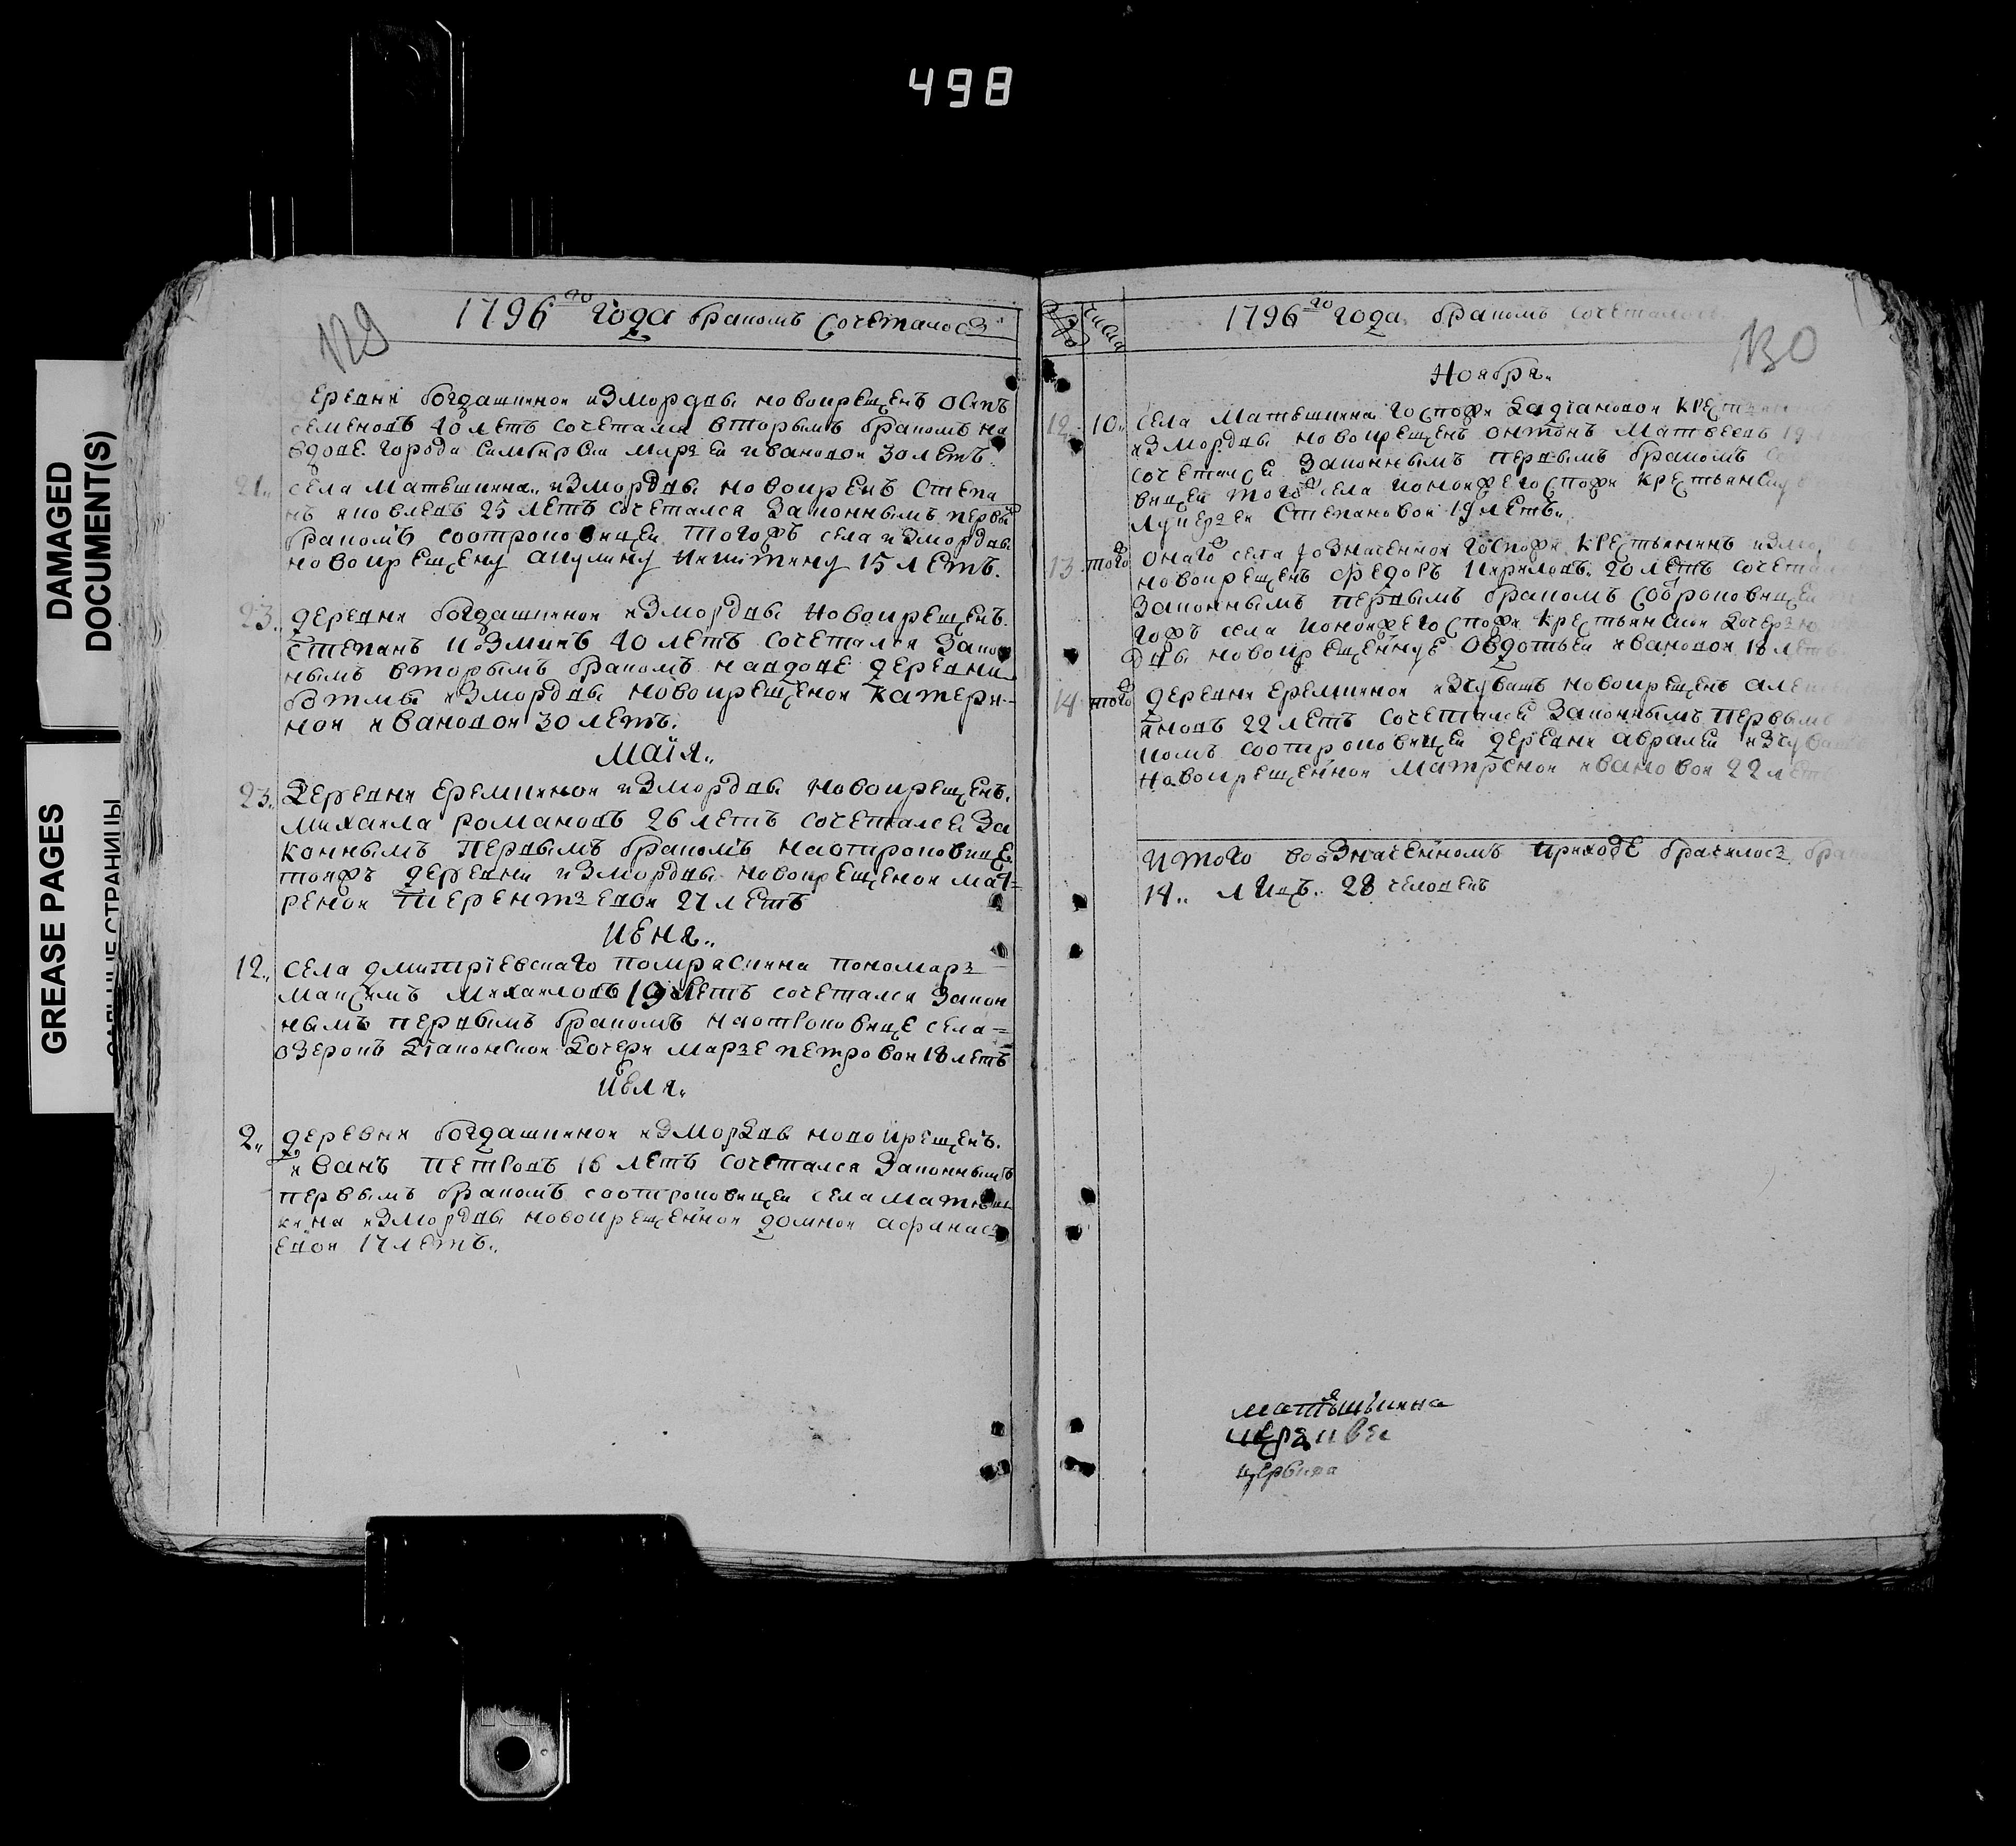 498
DAMAGED
DOCUMENT(S)
GREASE PAGES
129
1796го года бракомъ Сочеталось
деревни богдашкиной измордвы новокрещенъ осипъ
семеновъ 40 летъ сочетался вторымъ бракомъ на
вдове города Симбирска марьеи ивановои 30 летъ.
21.. села матюшкина.. измордвы новокренъ Степа
нъ яковлевъ 25 летъ сочетался законнымъ первы
бракомъ соотроковицеи тогожъ села измордвы
новокрещену акулину никитину 15 летъ.
23.. деревни богдашкинои измордвы новокрещенъ.
Степанъ козминъ 40 летъ сочетался закон
нымъ вторымъ бракомъ навдове деревни
ботмы измордвы новокрещенои катери-
нои ивановои 30 летъ.
Маїя..
23. Деревни еремкинои измордвы новокрещенъ.
михаила романовъ 26 летъ сочетался за
коннымъ первымъ бракомъ наотроковице
тояжъ деревни измордвы новокрещенои мат=
ренои терентьевои 27 летъ
июня..
12.. села дмитрїевскаго помряскина пономарь
максимъ михаиловъ 19 летъ сочетался закон
нымъ первымъ бракомъ наотроковице села=
озерокъ дїаконскои дочери марье петровои 18 летъ
июля..
2.. деревни богдашкинои измордвы новокрещенъ.
иванъ петровъ 16 летъ сочетался законнымъ
первымъ бракомъ соотроковицеи села матюш
кина измордвы новокрещеннои домнои афанась
евои 17 летъ..
числа
1796го года. бракомъ сочеталось
130
Ноября..
12. 10. села Матюшкина господи крестьянинъ
измордвы новокрещенъ онтонъ Матвеевъ 19
сочетался законнымъ первымъ бракомъ
вицеи тогожъ села госпожи крестьянскую
лукерьеи Степановои 19 летъ..
13. того онаго села означеннои госпожи крестьянинъ
новокрещенъ федоръ кириловъ. 20 летъ сочетался
законнымъ первымъ бракомъ соброковицеи
гожъ села госпожи крестьянскои дочерью
двы новокрещенную овдотьеи ивановои 18 летъ
14 того деревни еремкинои изчувашъ новокрещенъ
ивановъ 22 летъ сочетался законнымъ первымъ
комъ соотроковицеи деревни авралеи изчувашъ
новокрещеннои матренои ивановои 22 летъ
итого воозначенномъ приходе брачилось
14.. лицъ.. 28 человекъ
матюшкина
церкви